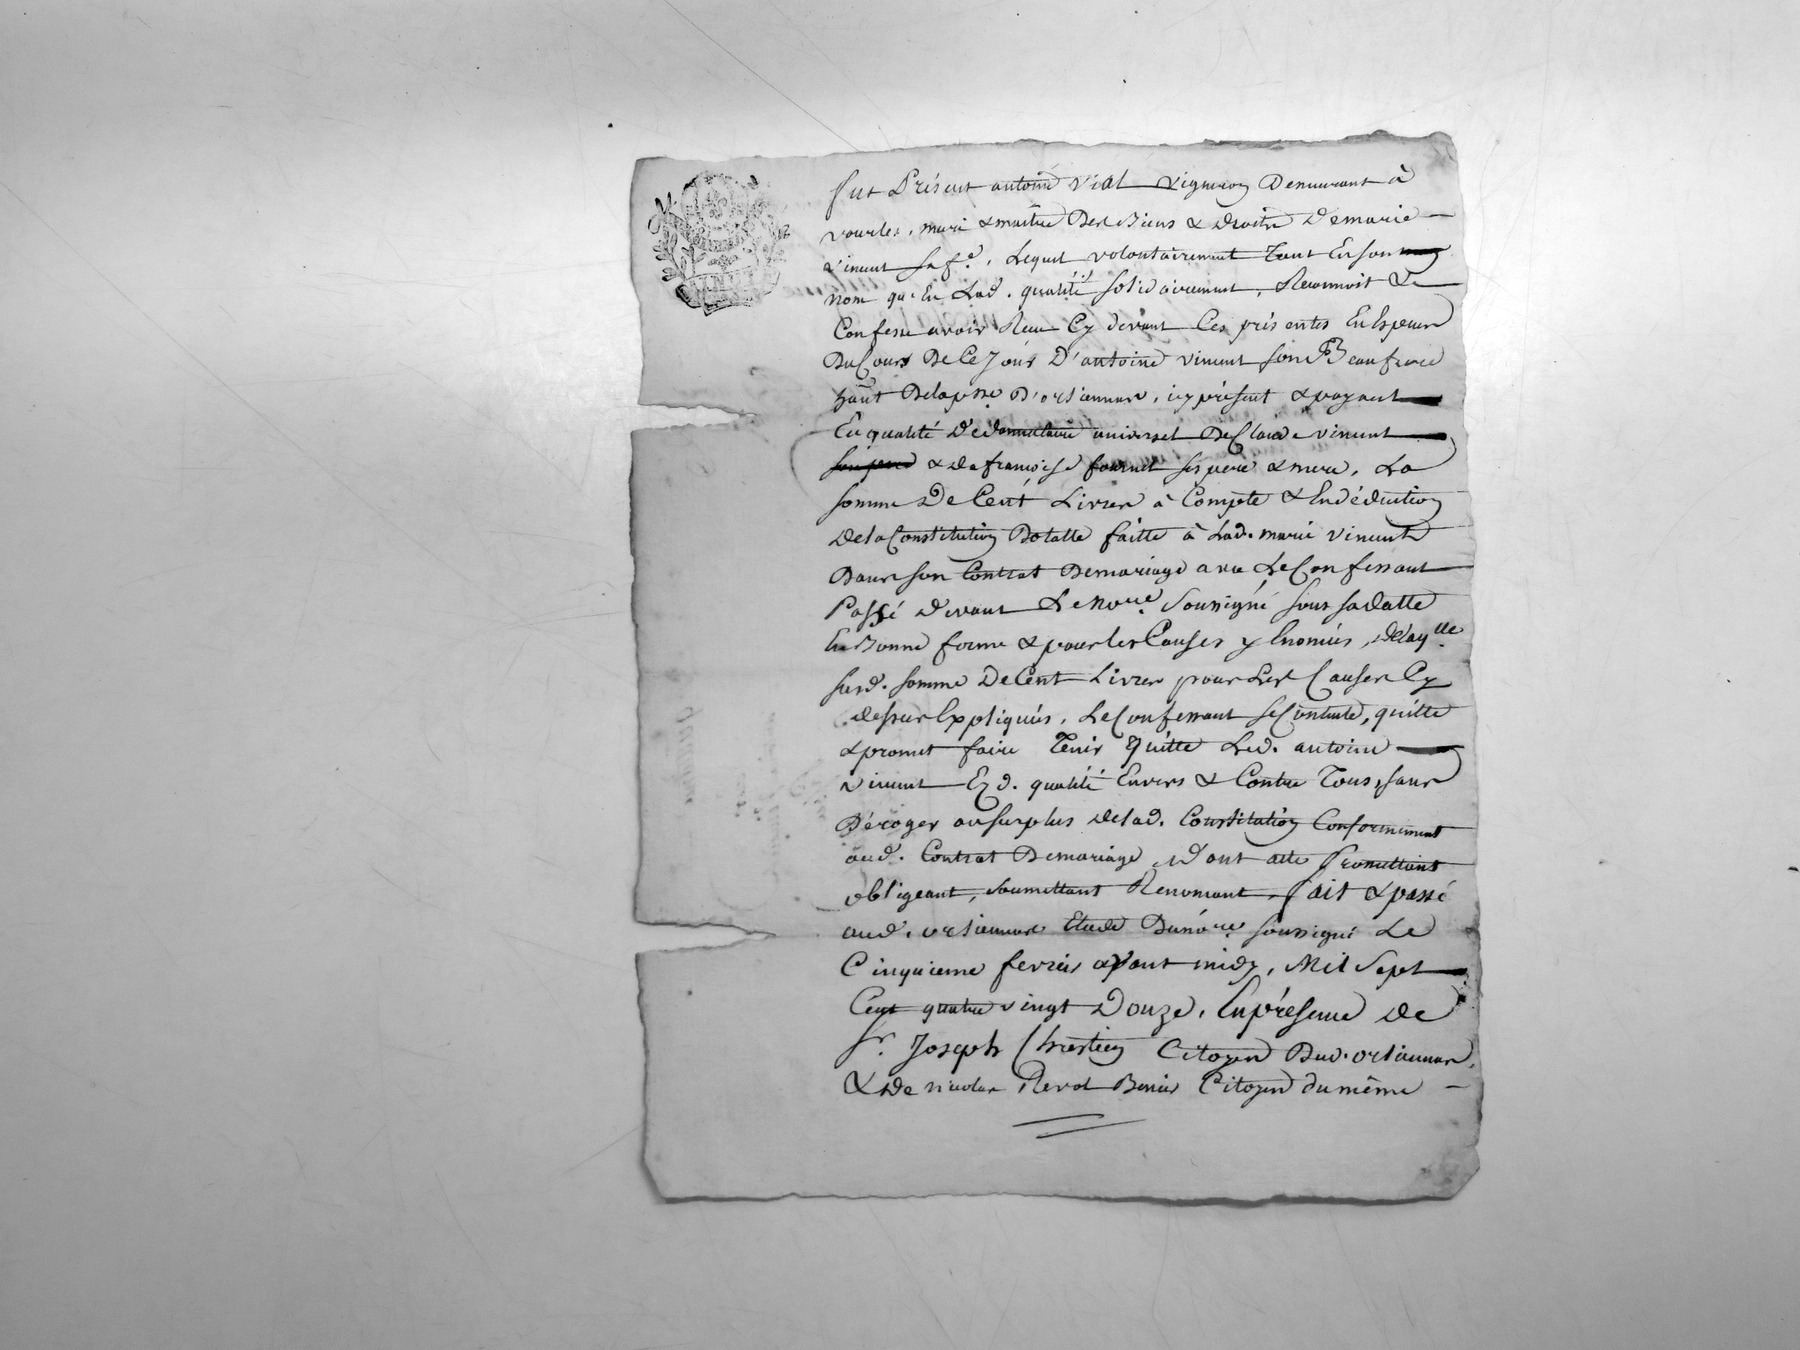 fut Présent antoine Vial vigneron Demeurant à
vourles, mari & maitre Des Biens & droits De marie
vincent sa fe. Lequel volontairement Tant En son
nom qu'En Lad. qualité solidairement, Reconnoit &
Confesse avoir Reçu Cy devant Ces présentes En Especes
Du Cours De Ce Jour D'antoine vincent son Beaufrere
hãnt Delapsse D'orliennas, icy présent & payant
En qualité De donnataire universel De Claude vincent
son pere & de françoise fournel ses pere & mere, La
somme De Cent Livres à Compte & En déduction
De la Constitution Dotalle faitte à Lad. marie vincent
Dans son Contrat De mariage avec Le Confessant
Passé devant Le nore. soussigné sous sa datte
En Bonne forme & pour les Causes y Enoncées, de laqlle
susd. somme De Cent Livres pour Les Causes Cy
dessus Expliquées, Le Confessant se Contente, quitte
& promet faire Tenir quitte Led. antoine
vincent Ezd. qualité Envers & Contre Tous, sans
Déroger au surplus de lad. Constitution Conformement
aud. Contrat De mariage, dont acte Promettant
obligeant, soumettant Renonçant, fait & passé
aud. orliennas Etude Du nore. soussigné Le
Cinquieme fevrier avant midy, Mil Sept
Cent quatre vingt Douze, En présence de
sr. Joseph Chrestien Citoyen Dud. orliennas,
& de nicolas Citoyen du même